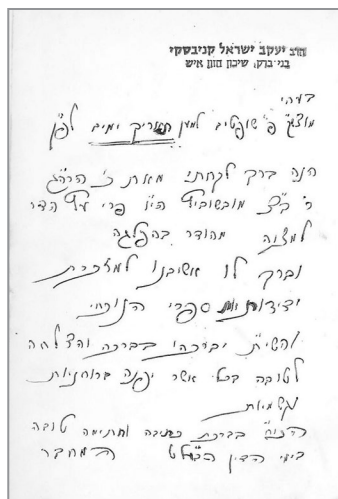 הרב יעקב ישראל קניבסקי
בני-ברק, שיכון חזון איש
בעהי
מוצש"ק פ' שופטים למען תאריך ימים לפ"ק
הנה ברק לקחתי מאת כ' הרה"ג
ר' ב"צ הי"ו פרי עץ הדר
למצוה מהודר בהפלגה
וברק לו אשיבנו למזכרת
ידידות ספרי הנוכחי
והשי"ת יברכהו בברכה והצלחה
לטובה בכל אשר יפנה ברוחניות
וגשמיות
בברכת כתיבה וחתימה טובה
ביומי הדין המחבר